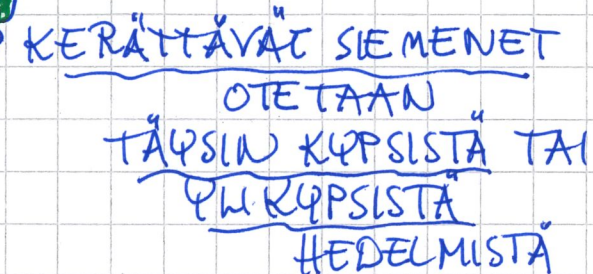 KERÄTTÄVÄT SIEMENET
OTETAAN
TÄYSIN KYPSISTÄ TAI
YLIKYPSISTÄ
HEDELMISTÄ